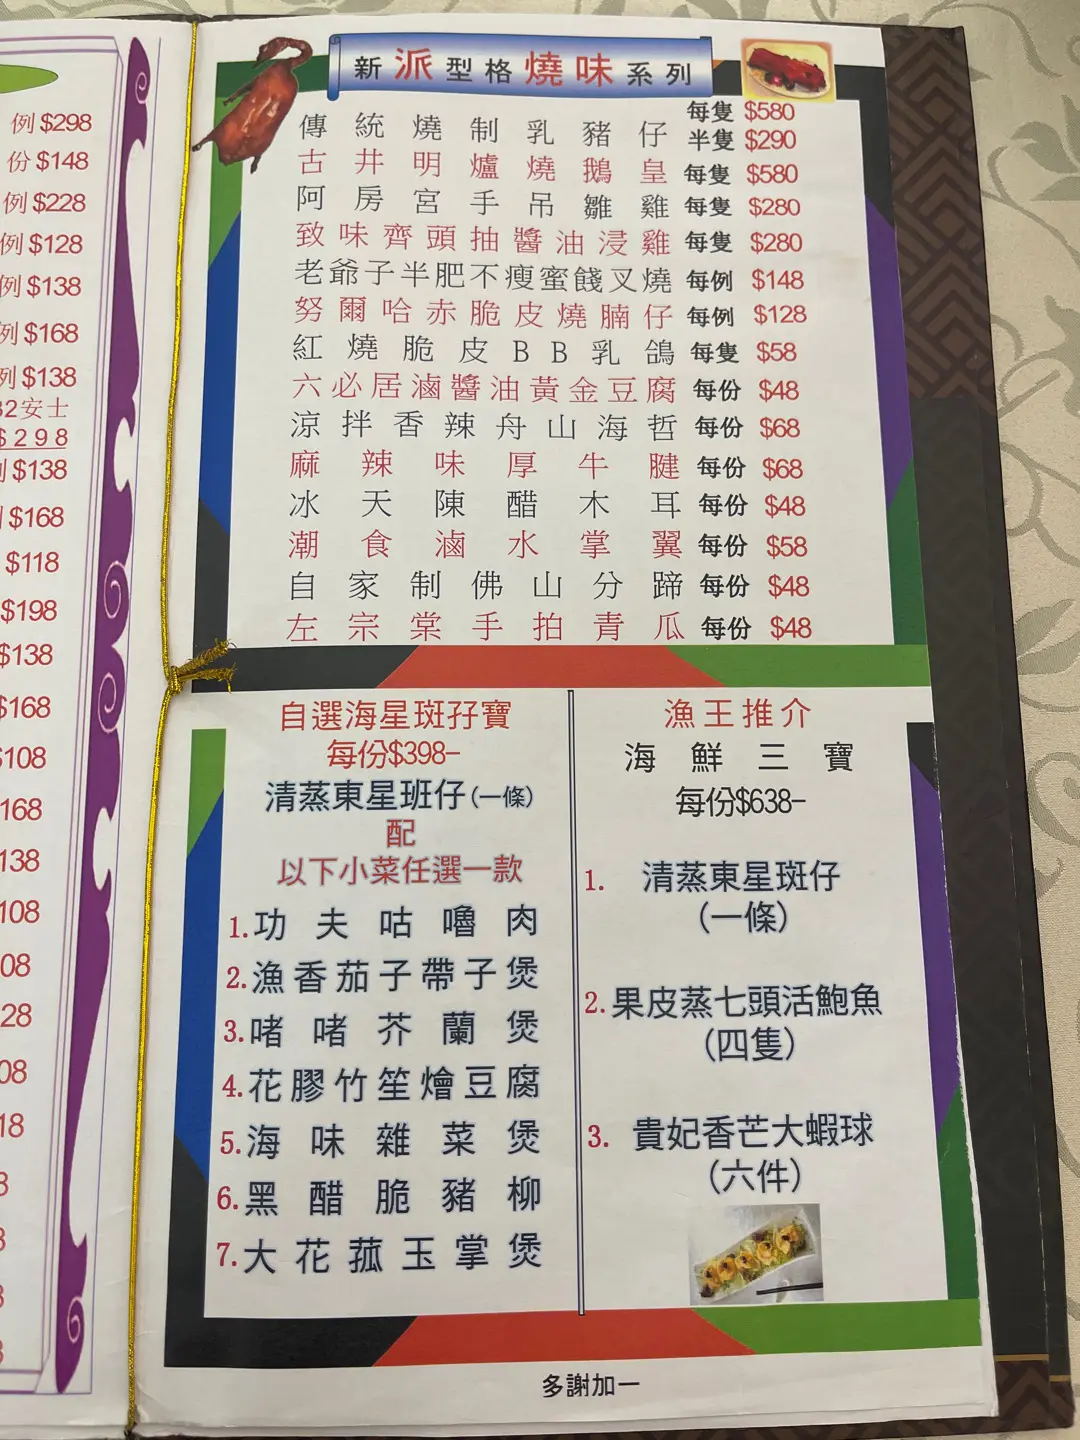 例$298
份$148
例$228
例$128
例$138
例$168
例$138
32安士
$298
$138
$168
$118
$198
$138
$168
$108
168
138
108
08
28
08
18
新派型格燒味系列
傳統燒制乳豬仔 每隻 $580
半隻 $290
古井明爐燒鵝皇 每隻 $580
阿房宮手吊雛雞 每隻 $280
致味齊頭抽醬油浸雞 每隻 $280
老爺子半肥不瘦蜜餞叉燒 每例 $148
努爾哈赤脆皮燒腩仔 每例 $128
紅燒脆皮BB乳鴿 每隻 $58
六必居滷醬油黃金豆腐 每份 $48
涼拌香辣舟山海哲 每份 $68
麻辣味厚牛腱 每份 $68
冰天陳醋木耳 每份 $48
潮食滷水掌翼 每份 $58
自家制佛山分蹄 每份 $48
左宗棠手拍青瓜 每份 $48
自選海星斑孖寶
每份$398-
清蒸東星班仔(一條)
配
以下小菜任選一款
1.功夫咕嚕肉
2.漁香茄子帶子煲
3.啫啫芥蘭煲
4.花膠竹笙燴豆腐
5.海味雜菜煲
6.黑醋脆豬柳
7.大花菰玉掌煲
漁王推介
海鮮三寶
每份$638-
1. 清蒸東星斑仔
(一條)
2.果皮蒸七頭活鮑魚
(四隻)
3. 貴妃香芒大蝦球
(六件)
多謝加一